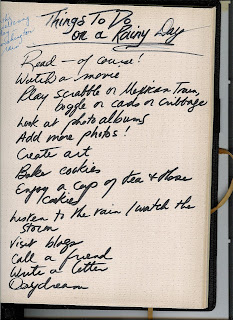 Things To Do
on a Rainy Day
Read - of course!
Watch a movie
Play scrabble or Mexican Train,
boggle or cards or cribbage
Look at photo albums
Add more photos!
Create art
Bake cookies
Enjoy a cup of tea & those
cookies
Listen to the rain / watch the
storm
Visit blogs
Call a friend
Write a letter
Daydream